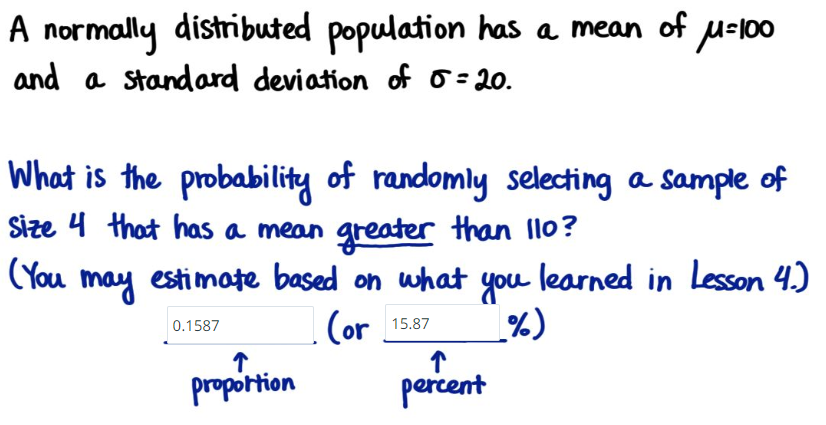 A normally distributed population has a mean of μ=100
and a standard deviation of σ=20.
What is the probability of randomly selecting a sample of
size 4 that has a mean greater than 110?
(You may estimate based on what you learned in Lesson 4.)
0.1587 (or 15.87 %)
↑ ↑
proportion percent